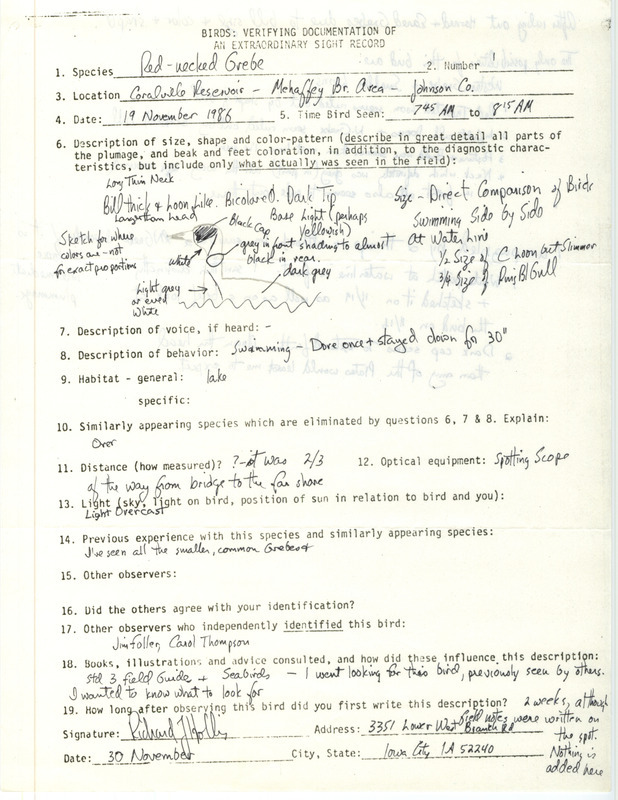 BIRDS: VERIFYING DOCUMENTATION OF
AN EXTRAORDINARY SIGHT RECORD
1. Species Red-necked Grebe 2. Number 1
3. Location Coralville Reservoir - Mehaffey Br. Area - Johnson Co.
4. Date: 19 November 1986 5. Time Bird Seen: 745 AM to 815 AM
6. Description of size, shape and color-pattern (describe in great detail all parts of
the plumage, and beak and feet coloration, in addition, to the diagnostic charac-
teristics, but include only what actually was seen in the field):
Long Thin Neck
Bill thick & Loon Like. Bicolored. Dark Tip
Longer than head
Base Light (perhaps
yellowish)
Black Cap
Sketch for where
colors are - not
for exact proportions
White
grey in front shading to almost
black in rear.
dark grey
Light grey
or even
White
Size - Direct Comparison of Birds
Swimming Side by Side
At Water Line
1/2 Size of C Loon but Slimmer
3/4 Size of Ring Bl Gull
7. Description of voice, if heard: -
8. Description of behavior: Swimming - Dove once & stayed down for 30"
9. Habitat - general: lake
specific:
10. Similarly appearing species which are eliminated by questions 6, 7 & 8. Explain:
Over
11. Distance (how measured)? ?-it was 2/3 12. Optical equipment: Spotting Scope
of the way from bridge to the far shore
13. Light (sky, light on bird, position of sun in relation to bird and you):
Light Overcast
14. Previous experience with this species and similarly appearing species:
I've seen all the smaller, common Grebes
15. Other observers:
16. Did the others agree with your identification?
17. Other observers who independently identified this bird:
Jim Fuller, Carol Thompson
18. Books, illustrations and advice consulted, and how did these influence this description:
Std 3 field Guide + Seabirds - I went looking for this bird, previously seen by others.
I wanted to know what to look for
19. How long after observing this bird did you first write this description? 2 weeks, although
field notes were written on
the spot.
Nothing is
added here
Signature: Richard J Hollis Address: 3351 Lower West Branch Rd
Date: 30 November City, State: Iowa City IA 52240